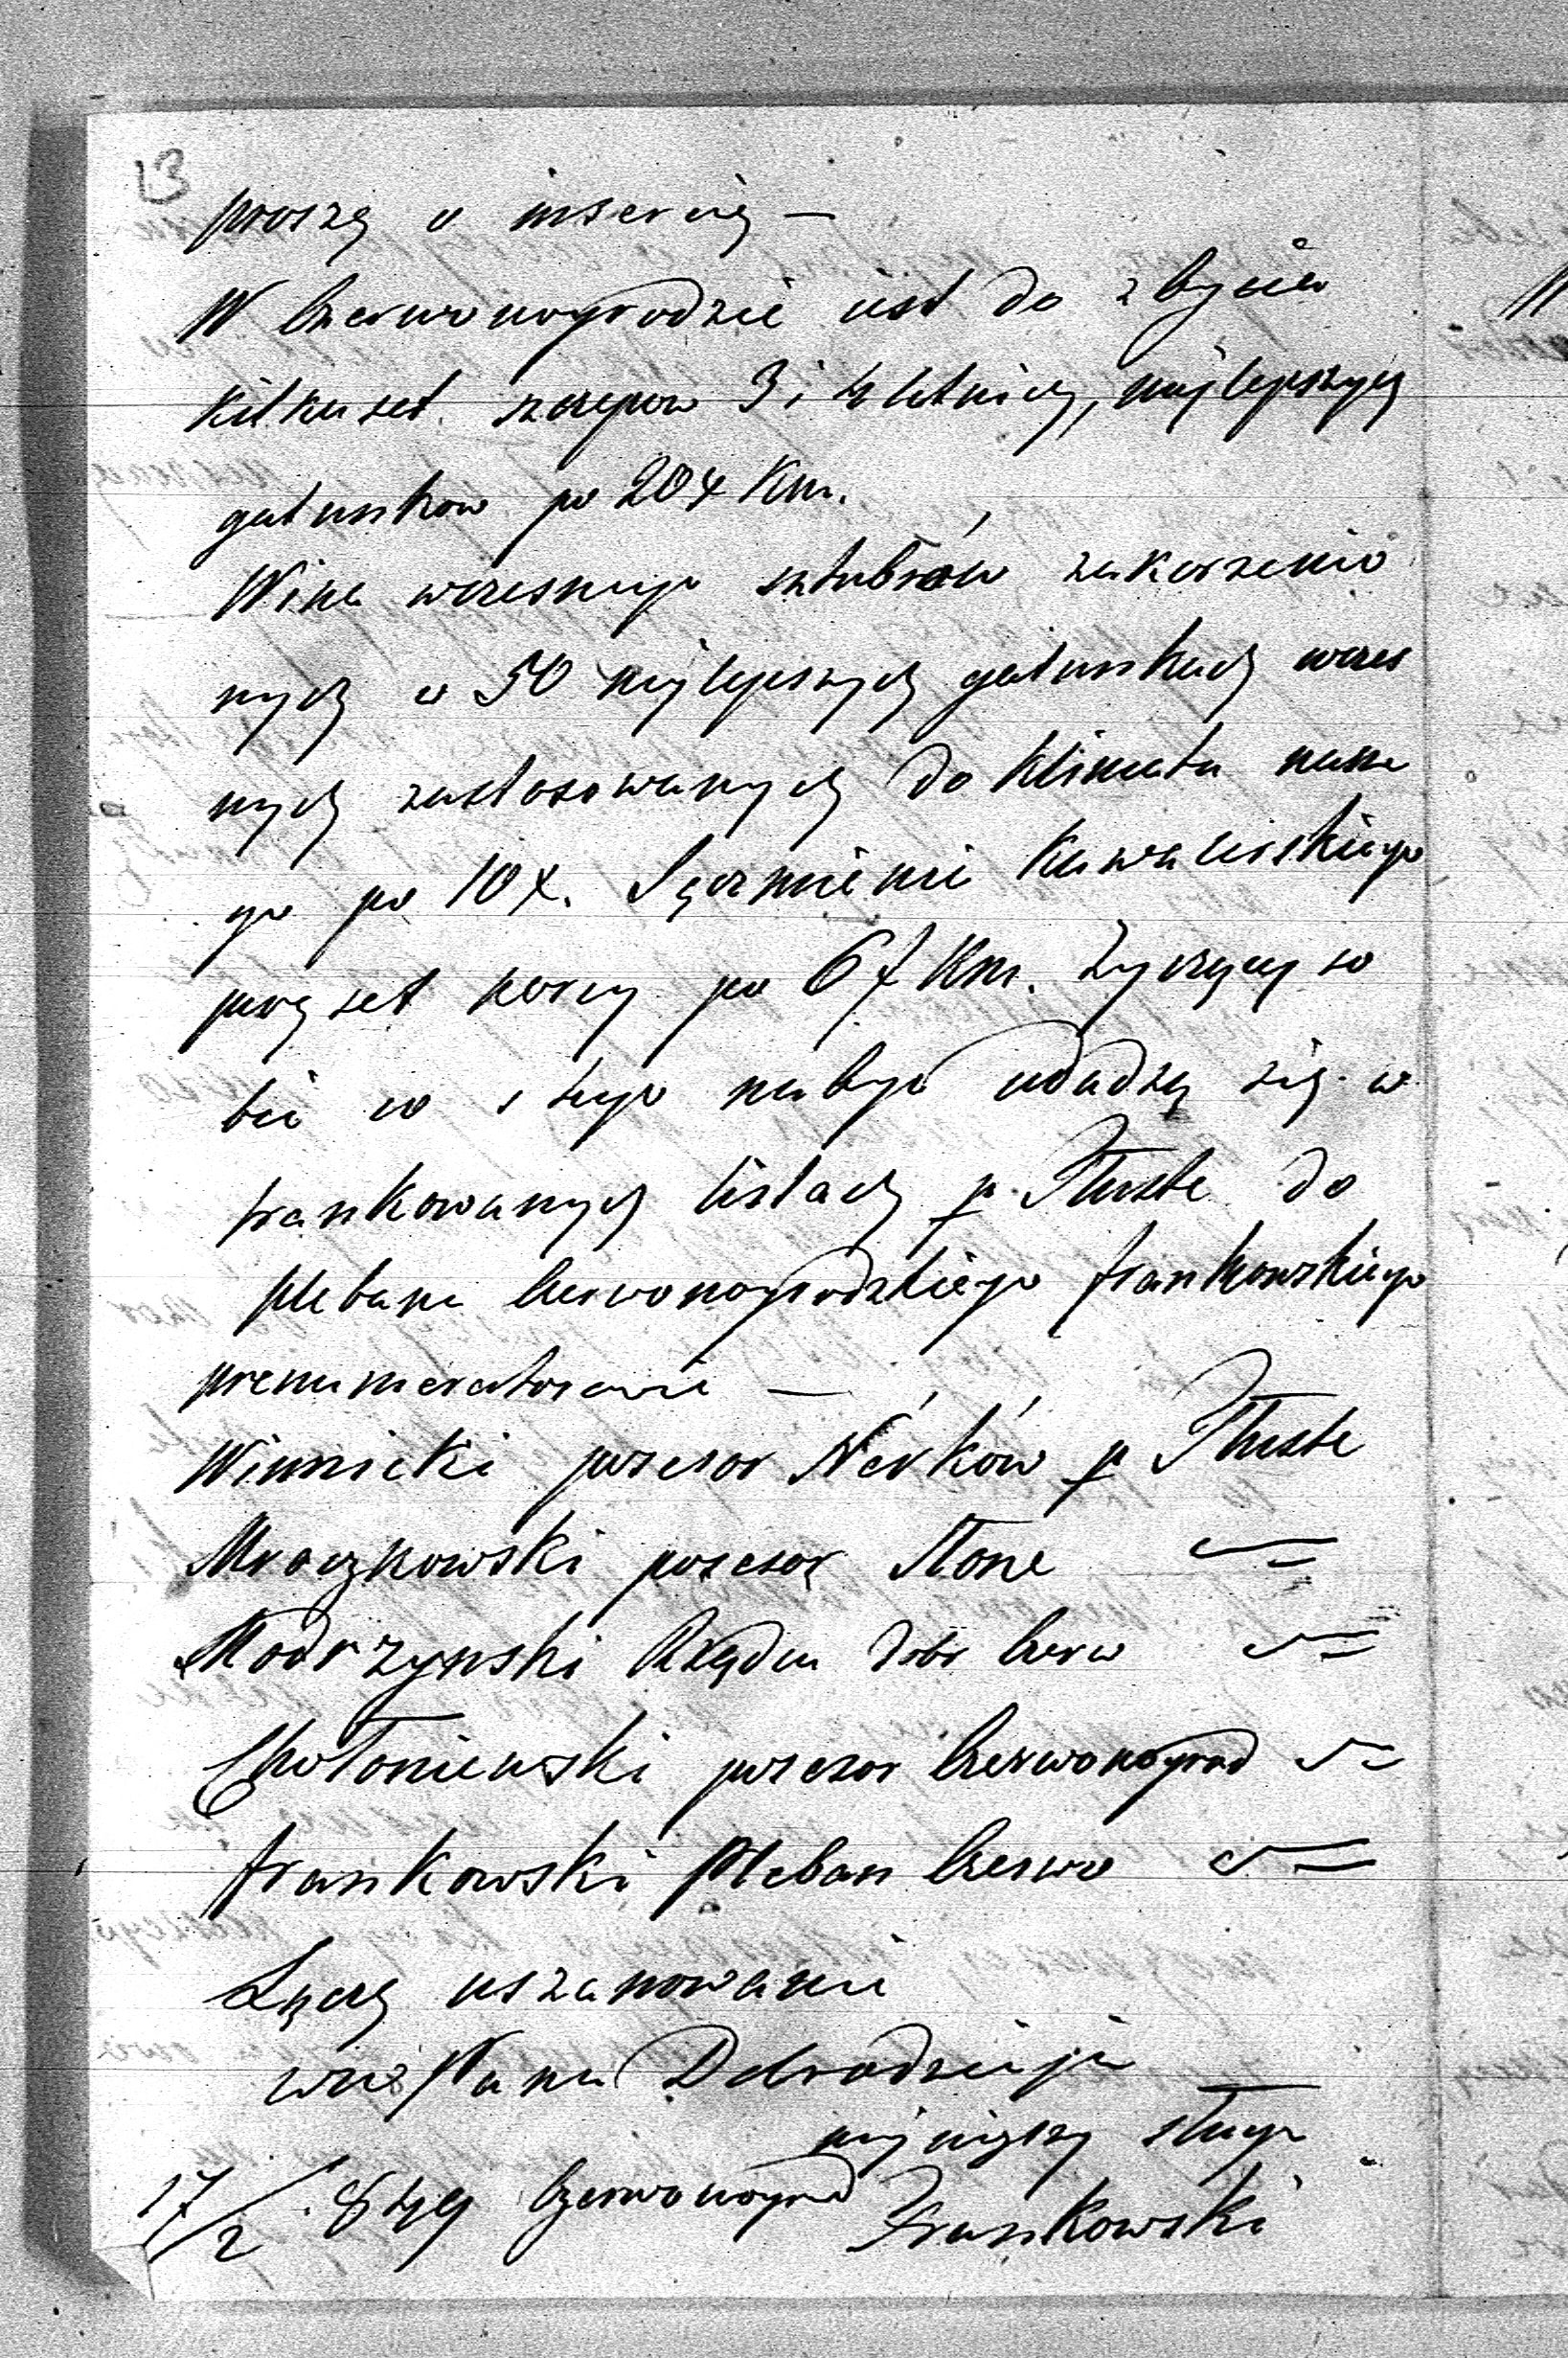 13
proszę o insercię —
W Czerwonogrodzie iest do zbycia
kilkaset szczepow 3 i 4 letnich, najlepszych
gatunkow po 20 x Km.
Wina wczesnego sztubrów zakorzenio
nych w 50 najlepszych gatunkach wczes
nych zastosowanych do klimatu nasze
go po 10 x. Jęczmienia Kawalerskiego
parę set korcy po 6 f Km. Życzący so
bie co s tego nabyć udadzą się w
frankowanych listach p. Tłuste do
plebana Czerwonogrodzkiego Frankowskiego
prenumeratorowie —
Winnicki posesor Nérków p Tłuste
Mroczkowski posesor Słone
Modrzynski Rządca dobr Czerw
Chołoniewski posesor Czerwonogrod
Frankowski Pleban Czerwo
Łączę uszanowanie
Pana Dobrodzieja
najniższy sługa
17/2 849 Czerwonogrod Frankowski